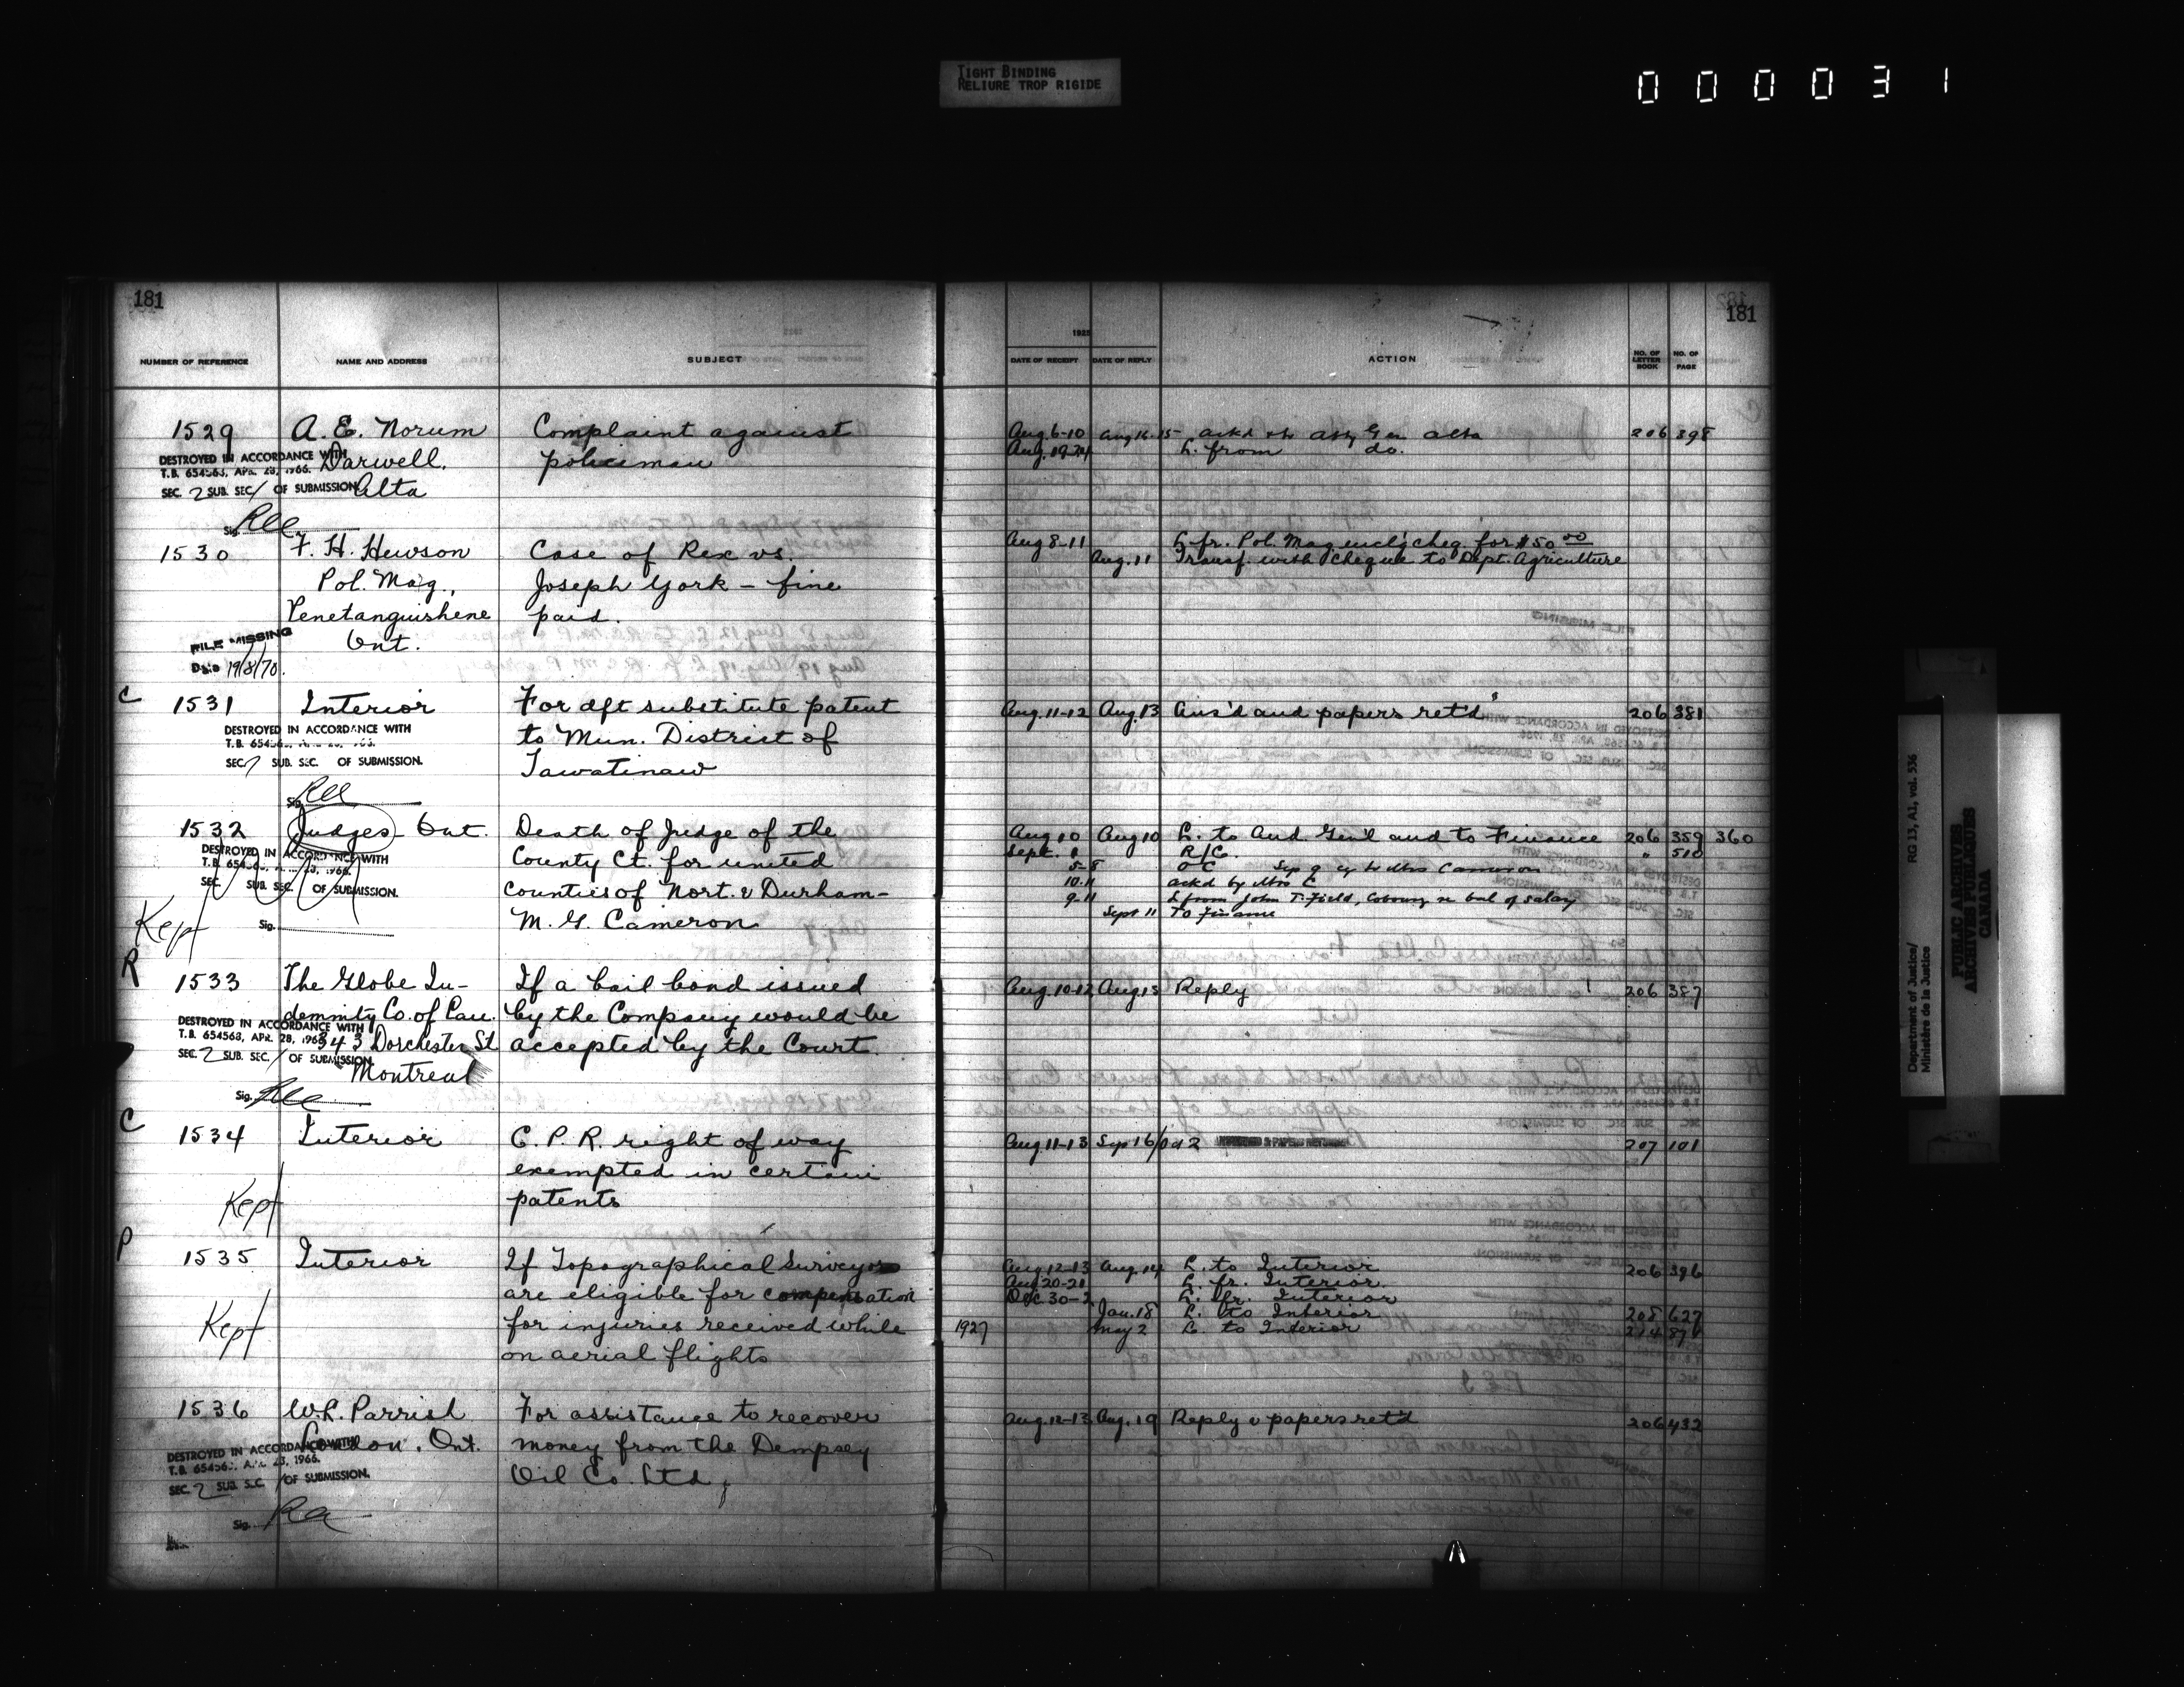 TIGHT BINDING
RELIURE TROP RIGIDE
000031
181
NUMBER OF REFERENCE NAME AND ADDRESS SUBJECT
1529 A. E. Norum Complaint against
DESTROYED IN ACCORDANCE WITH Darwell, policeman
T.B. 654563, APR. 28, 1966.
SEC. 2 SUB. SEC. / OF SUBMISSION Alta
Sig.
1530 F. H. Hewson Case of Rex vs.
Pol. Mag., Joseph York – fine
Penetanguishene paid.
FILE MISSING Ont.
Date 19/8/70.
C 1531 Interior For dft substitute patent
DESTROYED IN ACCORDANCE WITH to Mun. District of
T.B.
SEC. SUB. SEC. OF SUBMISSION. Tawatinaw
Sig.
1532 Judges – Ont. Death of Judge of the
DESTROYED IN ACCORDANCE WITH County Ct. for united
SEC. SUB. SEC. OF SUBMISSION. Counties of Nort. & Durham –
Kept Sig. M. G. Cameron
R 1533 The Globe In- If a bail bond issued
demnity Co. of Can. by the Company would be
DESTROYED IN ACCORDANCE WITH
T.B. 654568, APR. 28, 1966 343 Dorchester St accepted by the Court.
SEC. 2 SUB. SEC. / OF SUBMISSION.
Montreal
Sig.
C 1534 Interior C. P. R. right of way
exempted in certain
Kept patents
P 1535 Interior If Topographical Surveyors
are eligible for compensation
Kept for injuries received while
on aerial flights
1536 W. L. Parrish For assistance to recover
London, Ont. money from the Dempsey
DESTROYED IN ACCORDANCE WITH
SEC. 2 SUB. SEC. / OF SUBMISSION. Oil Co. Ltd,
Sig.
181
DATE OF RECEIPT DATE OF REPLY ACTION NO. OF LETTER BOOK NO. OF PAGE
Aug. 6-10 Aug 14-15 ackd & to Atty Gen Alta 206 398
Aug. 19-24 L. from do.
Aug 8-11 L. fr. Pol. Mag encl'g cheq. for $50.00
Aug. 11 Transf. with cheque to Dept. Agriculture
Aug. 11-12 Aug. 13 Ans'd and papers ret'd 206 381
Aug 10 Aug 10 L. to Aud. Gen'l and to Finance 206 359 360
Sept. 9 R/C. " 510
5-8 O C Sep 9 cy to Mrs Cameron
10.11 ackd by Mrs C
9-11 L from John T. Field, Cobourg re bal of salary
Sept 11 To Finance
Aug. 10-12 Aug. 13 Reply 206 387
Aug. 11-13 Sep 16/Oct 2 207 101
Aug. 12-13 Aug. 14 L. to Interior 206 396
Aug 20-21 L. fr. Interior.
Dec 30-2 L. fr. Interior
Jan. 18 L. to Interior 208 627
1927 May 2 L. to Interior 214
Aug. 12-13 Aug. 19 Reply & papers ret'd 206 432
Department of Justice/
Ministère de la Justice
RG 13, A1, vol. 536
PUBLIC ARCHIVES
ARCHIVES PUBLIQUES
CANADA